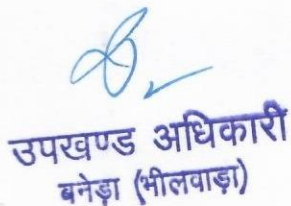 उपखण्ड अधिकारी
बनेड़ा (भीलवाड़ा)